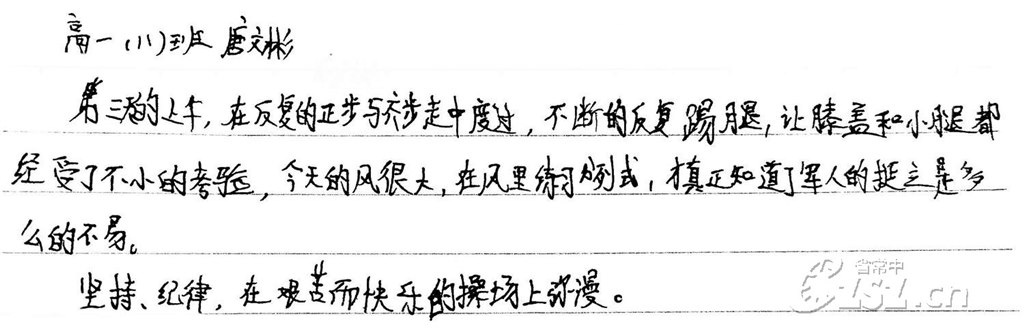 高一(11)班 唐文彬
第三天的上午,在反复的正步与齐步走中度过,不断的反复踢腿,让膝盖和小腿都
经受了不小的考验,今天的风很大,在风里练习队列式,才真正知道了军人的挺立是多
么的不易。
坚持、纪律,在艰苦而快乐的操场上弥漫。
省常中
ZSZ.cn